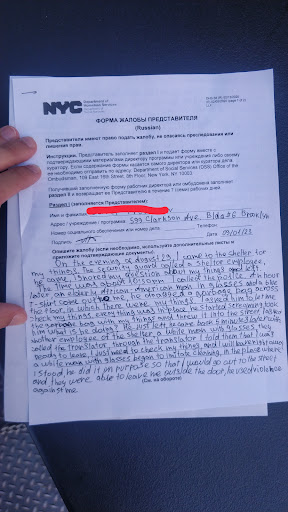 NYC
Department of
Homeless Services
ФОРМА ЖАЛОБЫ ПРЕДСТАВИТЕЛИ
(Russian)
Представители имеют право подать жалобу, не опасаясь преследования или
лишения прав.
Инструкции. Представитель заполняет раздел I и подает форму вместе с
подтверждающими материалами директору программы или учреждения либо своему
куратору. Если содержание формы касается самого директора или куратора дела,
ее необходимо отправить по адресу: Department of Social Services (DSS) Office of the
Ombudsman, 109 East 16th Street, New York, New York 10003
Получивший заполненную форму рабочий директор или омбудсмен заполняет
раздел II и возвращает ее Представителю в течение 7 (семи) рабочих дней.
Раздел I (заполняется Представителем):
Имя и фамилия
Адрес / учреждение / программа 599 Clarkson Ave. Bldg #6 Brooklyn
Номер социального обеспечения или номер дела Телефон
Подпись Дата 09/01/23
Опишите жалобу (если необходимо, используйте дополнительные листы и
приложите подтверждающие документы).
On the evening of august 29, I came to the shelter for
my things. The security guard called a shelter employee,
he came, ignored my question about my things and left
The time was about 10:50 pm I called the police. An hour
later an elderly African American man in glasses and a blue
t-shirt came out to me, he dragged a garbage bag across
the floor, in which there were my things. I asked him to let me
check my things, everything was in place, he started
the garbage bag with my things and threw it into the street. I asked
him what he doing? He just left.
another employee of the shelter, a white man with glasses, they
called the translator, through the translator I told them that I was
ready to leave, I just need to check my things and I will leave right away
a white man with glasses began to imitate cleaning in the place where
I stood, he did it on purpose so that I would go out to the street
and they were able to leave me outside the door, he used violence
against me.
(См. на обороте)